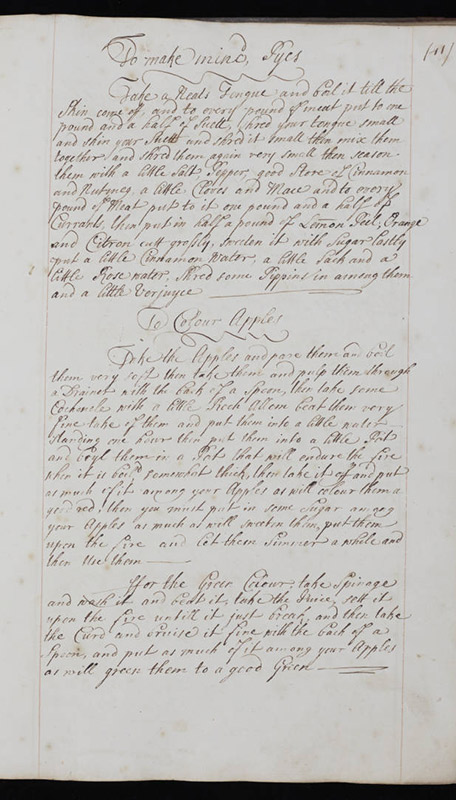 To make minc'd Pyes
Take a Neats Tongue and boil it till the
Skin come of, and to every pound of meat put to one
pound and a half of Suett, shred your tongue small
and skin your Suett and shred it small then mix them
together and shred them again very small then season
them with a little Salt, Pepper, good Store of Cinnamon
and Nutmeg, a little Cloves and Mace and to every
pound of Meat put to it one pound and a half of
Currants, then put in half a pound of Lemon Peel, Orange
and Citron cutt grosly, sweeten it with Sugar lastly
put a little Cinnamon Water, a little Sack and a
little Rose water, Shred some Pippins in among them
and a little Verjuyce
To Colour Apples
Take the Apples and pare them and boil
them very soft then take them and pulp them through
a Drainer with the back of a spoon, then take some
Cochenele with a little Roch Allom beat them very
fine take of them and put them into a little water
Standing one hour then put them into a little Pot
and boyl them in a Pot that will endure the fire
when it is boil'd somewhat thick, then take it off and put
as much of it among your Apples as will colour them a
good red, then you must put in some Sugar among
your Apples as much as will sweeten them, put them
upon the fire and let them Simmer a while and
then Use them
Ffor the Green Colour, take Spinage
and wash it and beat it, take the Juice, sett it
upon the fire untill it just break, and then take
the Curd and bruise it fine with the back of a
Spoon, and put as much of it among your Apples
as will green them to a good Green